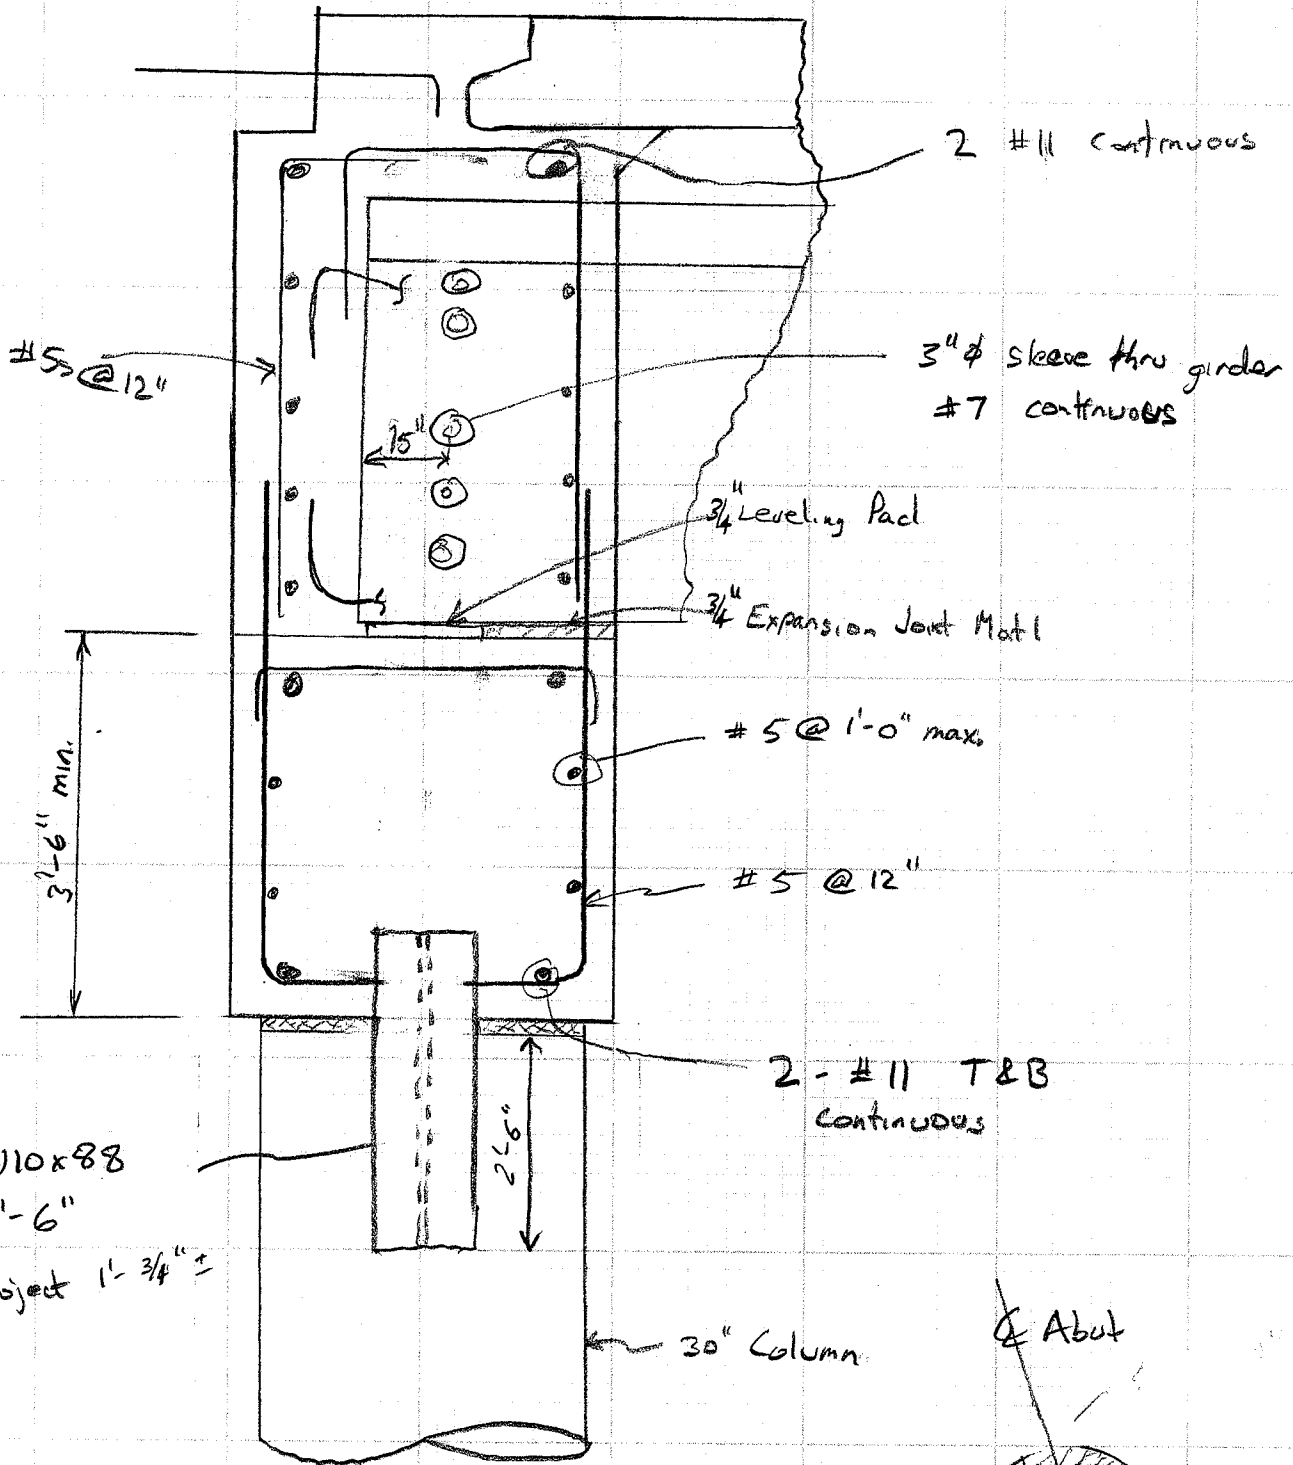 2 #11 Continuous
#5s @ 12"
3" ⌀ sleeve thru girder
#7 continuous
3/4" Leveling Pad
3/4" Expansion Joint Mat'l
# 5 @ 1'-0" max.
3'-6" min.
# 5 @ 12"
2 - #11 T & B
continuous
10x88
'-6"
oject 1'- 3/4" ±
30" Column
℄ Abut